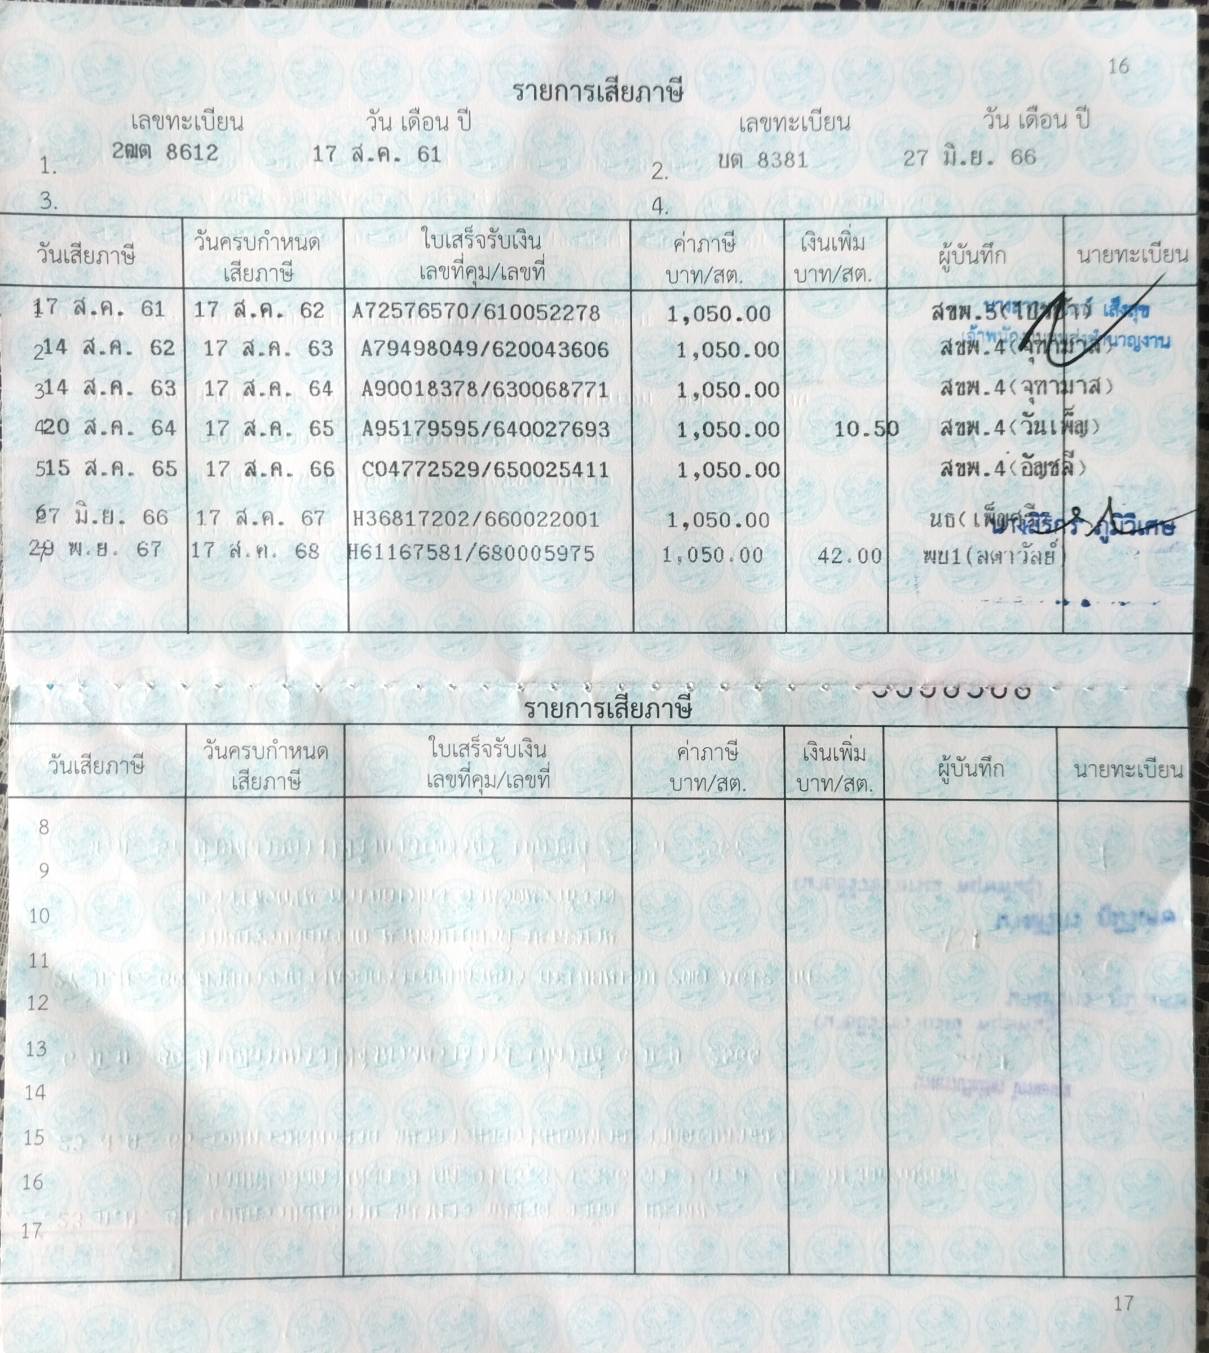 16
รายการเสียภาษี
เลขทะเบียน วัน เดือน ปี เลขทะเบียน วัน เดือน ปี
1. 2ฒต 8612 17 ส.ค. 61 2. บต 8381 27 มิ.ย. 66
3. 4.
วันเสียภาษี วันครบกำหนด เสียภาษี ใบเสร็จรับเงิน เลขที่คุม/เลขที่ ค่าภาษี บาท/สต. เงินเพิ่ม บาท/สต. ผู้บันทึก นายทะเบียน
17 ส.ค. 61 17 ส.ค. 62 A72576570/610052278 1,050.00 เส็งสุข
2 14 ส.ค. 62 17 ส.ค. 63 A79498049/620043606 1,050.00 สขพ.4(จุฑามาส)
3 14 ส.ค. 63 17 ส.ค. 64 A90018378/630068771 1,050.00 สขพ.4(จุฑามาส)
4 20 ส.ค. 64 17 ส.ค. 65 A95179595/640027693 1,050.00 10.50 สขพ.4(วันเพ็ญ)
5 15 ส.ค. 65 17 ส.ค. 66 C04772529/650025411 1,050.00 สขพ.4(อัญชลี)
27 มิ.ย. 66 17 ส.ค. 67 H36817202/660022001 1,050.00 ภูมิวิเศษ
พ.ย. 67 17 ส.ค. 68 H61167581/680005975 1,050.00 42.00 พบ1(ลดาวัลย์)
รายการเสียภาษี
วันเสียภาษี วันครบกำหนด เสียภาษี ใบเสร็จรับเงิน เลขที่คุม/เลขที่ ค่าภาษี บาท/สต. เงินเพิ่ม บาท/สต. ผู้บันทึก นายทะเบียน
8
9
10
11
12
13
14
15
16
17
17